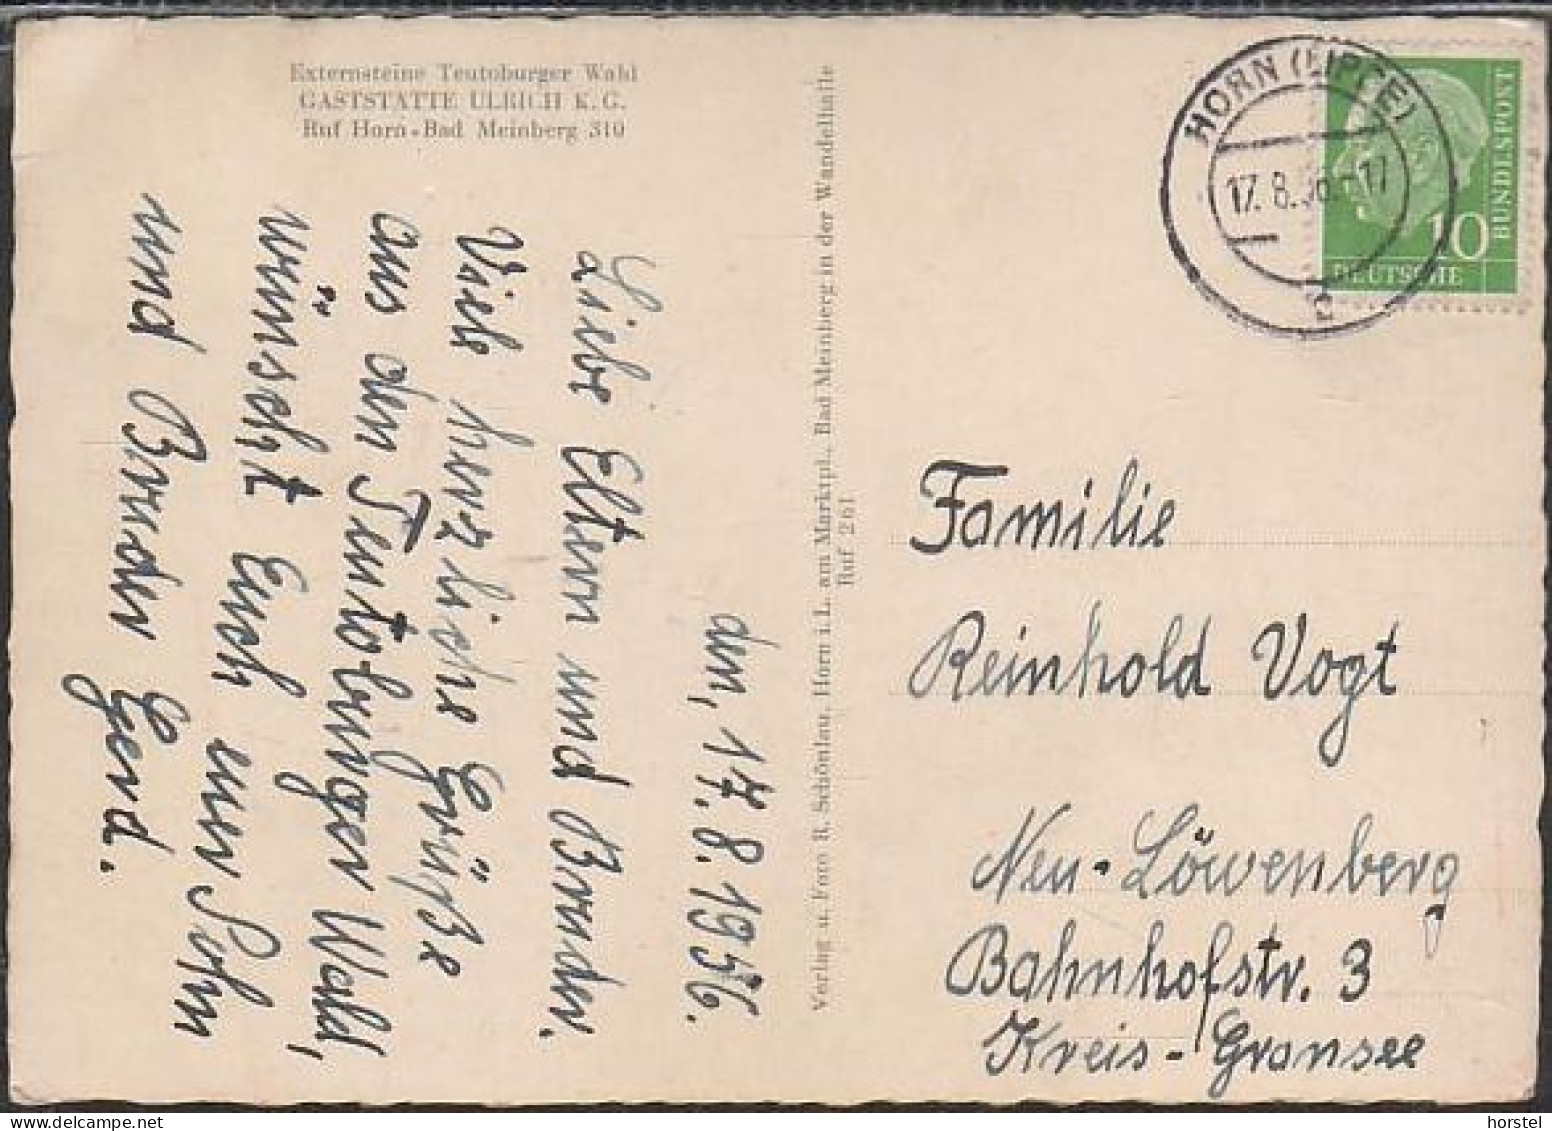 Externsteine Teutoburger Wald
GASTSTÄTTE ULRICH K.G.
Ruf Horn-Bad Meinberg 310
den, 17.8.1956.
Liebe Eltern und Bruder.
Viele herzliche Grüße
aus den Teutoburger Wald,
wünscht Euch euer Sohn
und Bruder Gerd.
Verlag u. Foto R. Schönlau, Horn i. L. am Marktpl., Bad Meinberg in der Wandelhalle
Ruf 261
HORN (LIPPE)
17.8.56.-17
c
10
DEUTSCHE
BUNDESPOST
Familie
Reinhold Vogt
Neu-Löwenberg
Bahnhofstr. 3
Kreis-Gransee
horstel